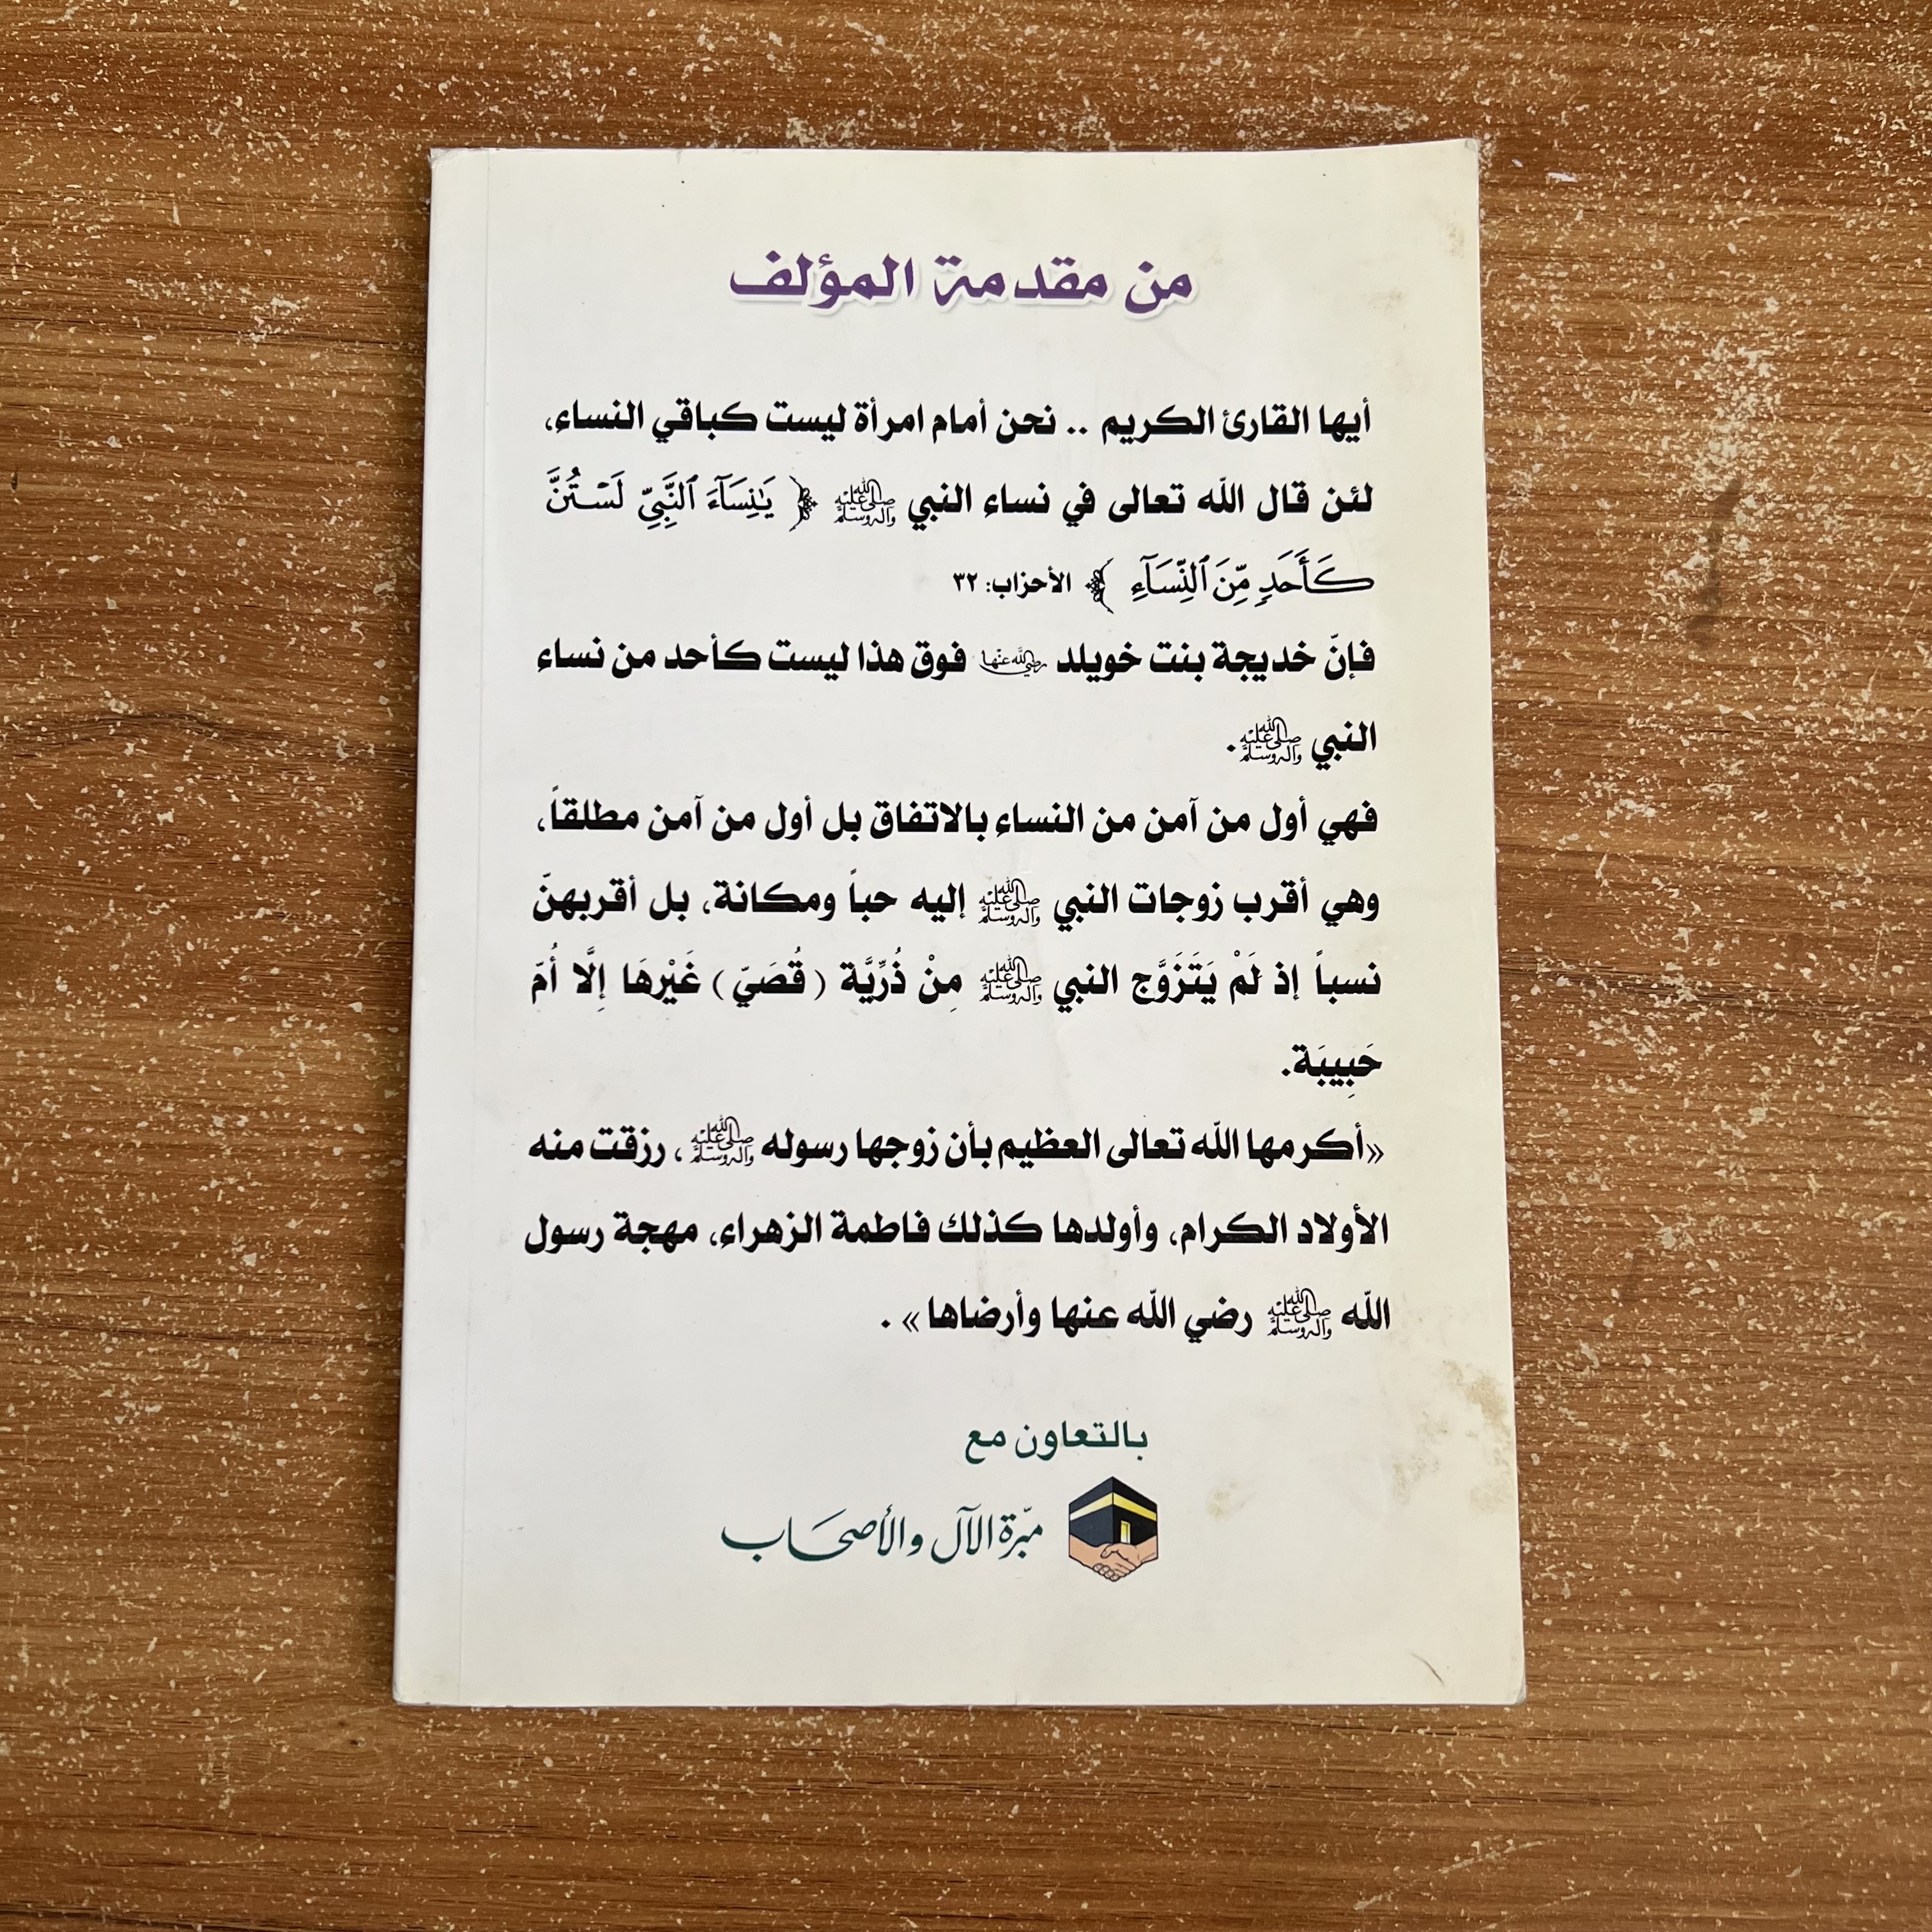 من مقدمة المؤلف
أيها القارئ الكريم .. نحن أمام امرأة ليست كباقي النساء،
لئن قال الله تعالى في نساء النبي ﷺ ﴿ يَٰنِسَآءَ ٱلنَّبِيِّ لَسۡتُنَّ
كَأَحَدٖ مِّنَ ٱلنِّسَآءِ ﴾ الأحزاب: ٣٢
فإنّ خديجة بنت خويلد رضي الله عنها فوق هذا ليست كأحد من نساء
النبي ﷺ.
فهي أول من آمن من النساء بالاتفاق بل أول من آمن مطلقاً،
وهي أقرب زوجات النبي ﷺ إليه حباً ومكانة، بل أقربهنّ
نسباً إذ لَمْ يَتَزَوَّج النبي ﷺ مِنْ ذُرِّيَّة (قُصَيّ) غَيْرهَا إِلَّا أُمّ
حَبِيبَة.
«أكرمها الله تعالى العظيم بأن زوجها رسوله ﷺ، رزقت منه
الأولاد الكرام، وأولدها كذلك فاطمة الزهراء، مهجة رسول
الله ﷺ رضي الله عنها وأرضاها».
بالتعاون مع
مبرّة الآل والأصحاب